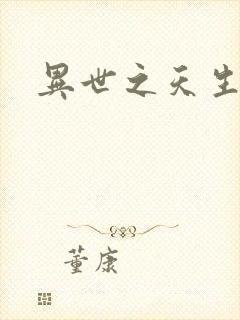 異世之天生
董康